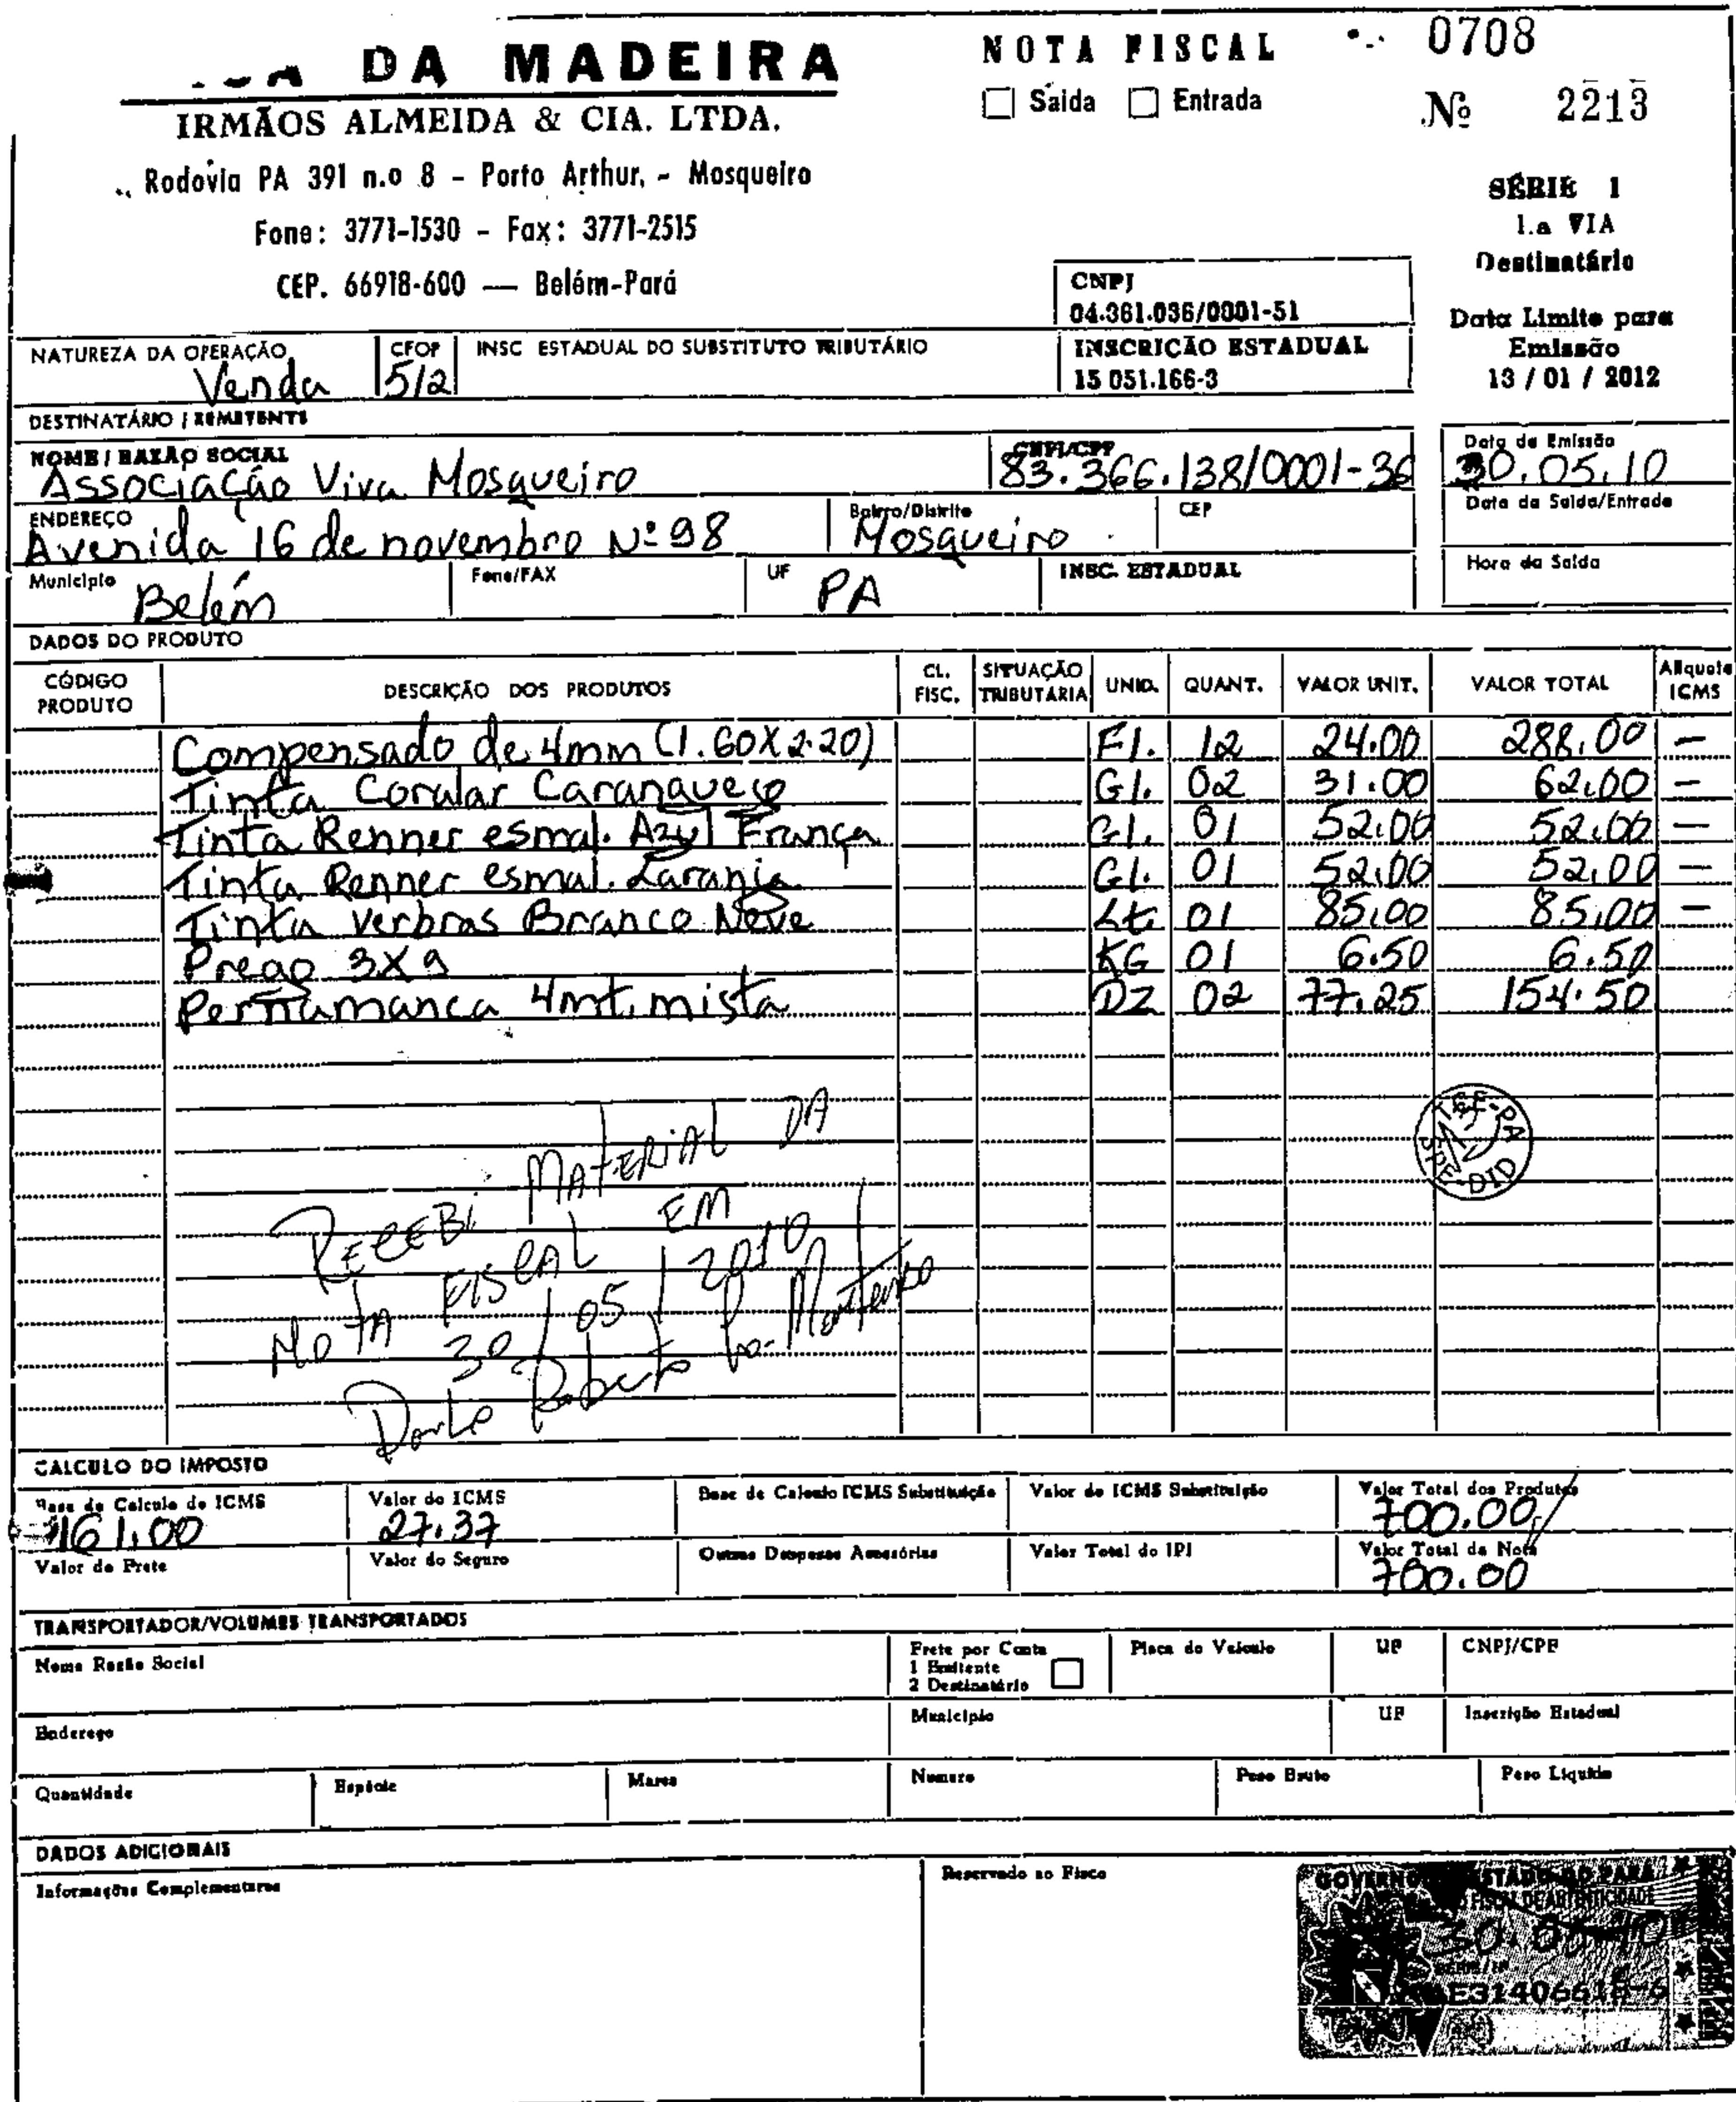 DA MADEIRA
IRMÃOS ALMEIDA & CIA. LTDA.
Rodovia PA 391 n.o 8 - Porto Arthur, - Mosqueiro
Fone: 3771-1530 - Fax: 3771-2515
CEP. 66918-600 — Belém-Pará
NOTA FISCAL 0708
Saida Entrada
Nº 2213
SÉRIE 1
1.a VIA
Destinatário
Data Limite para
Emissão
13 / 01 / 2012
CNPJ
04.361.036/0001-51
INSCRIÇÃO ESTADUAL
15 051.166-3
NATUREZA DA OPERAÇÃO
Venda
CFOP
512
INSC ESTADUAL DO SUBSTITUTO TRIBUTÁRIO
DESTINATÁRIO / REMETENTE
NOME / RAZÃO SOCIAL
Associação Viva Mosqueiro
CNPJ/CPF
83.366.138/0001-36
Data de Emissão
30.05.10
ENDEREÇO
Avenida 16 de novembro Nº 98
Bairro/Distrito
Mosqueiro
CEP
Data da Saida/Entrada
Municipio
Belém
Fone/FAX
UF
PA
INSC. ESTADUAL
Hora da Saida
DADOS DO PRODUTO
CÓDIGO PRODUTO DESCRIÇÃO DOS PRODUTOS CL. FISC. SITUAÇÃO TRIBUTARIA UNID. QUANT. VALOR UNIT. VALOR TOTAL Aliquota ICMS
Compensado de 4mm (1.60X2.20) Fl. 12 24.00 288.00 —
Tinta Coralar Caranguejo Gl. 02 31.00 62.00 —
Tinta Renner esmal. Azul França Gl. 01 52.00 52.00 —
Tinta Renner esmal. Laranja Gl. 01 52.00 52.00 —
Tinta Verbras Branco Neve Lt. 01 85.00 85.00 —
Prego 3X9 KG 01 6.50 6.50
Pernamanca 4mt. mista DZ 02 77.25 154.50
TRE-PA
SPE-DID
RECEBI MATERIAL DA
NOTA FISCAL EM
30/05/2010
CALCULO DO IMPOSTO
Base de Calculo do ICMS
161.00
Valor do ICMS
27.37
Base de Calculo ICMS Substituição
Valor do ICMS Substituição
Valor Total dos Produtos
700.00
Valor do Frete
Valor do Seguro
Outras Despesas Acessórias
Valor Total do IPI
Valor Total da Nota
700.00
TRANSPORTADOR/VOLUMES TRANSPORTADOS
Nome Razão Social
Frete por Conta
1 Emitente
2 Destinatário
Placa do Veiculo
UF
CNPJ/CPF
Endereço
Municipio
UF
Inscrição Estadual
Quantidade
Espécie
Marca
Numero
Peso Bruto
Peso Liquido
DADOS ADICIONAIS
Informações Complementares
Reservado ao Fisco
GOVERNO ESTADO DO PARÁ
FISCAL DE AUTENTICIDADE
30.05.10